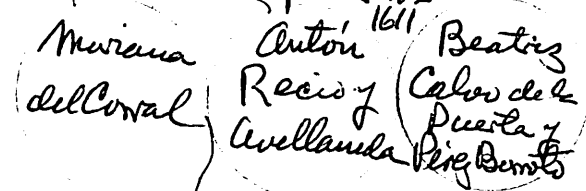 1611
Mariana
del Corral
Antón
Recio y
Avellaneda
Beatriz
Calvo de la
Puerta y
Pérez Borroto